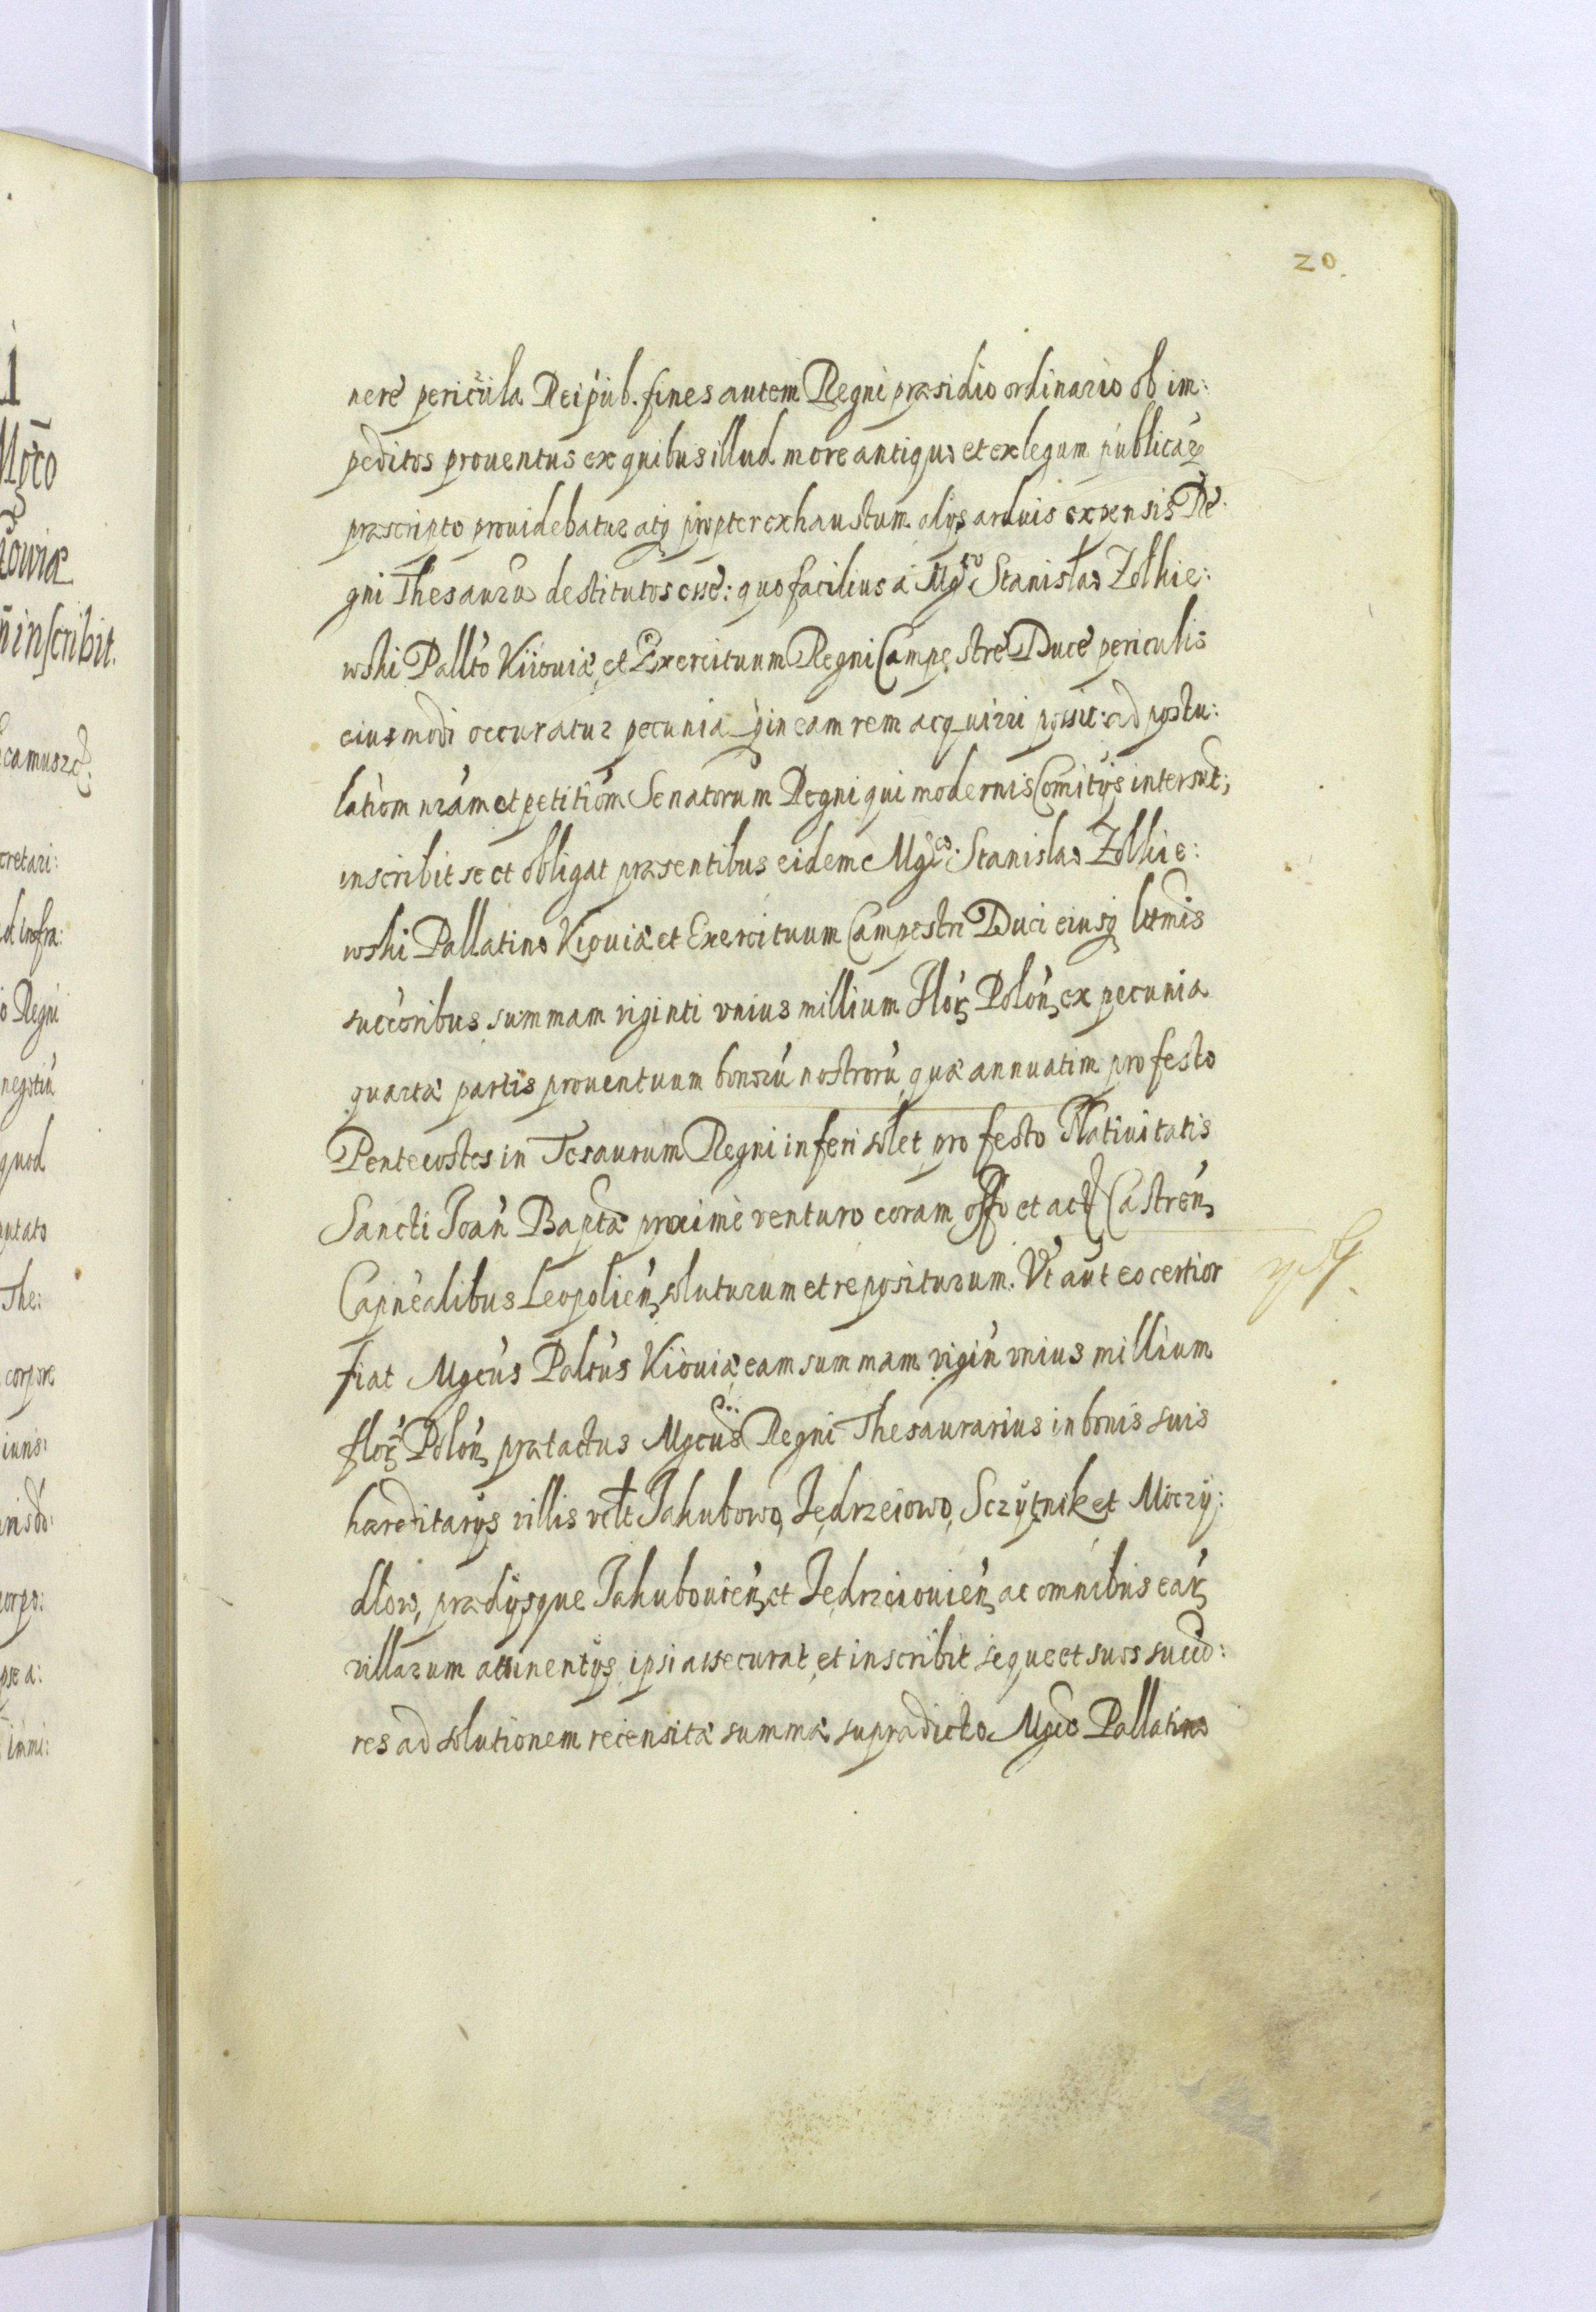 20.
nere pericula Reipub. fines autem Regni præsidio ordinario ob im:
peditos prouentus ex quibus illud more antiquo et ex legum publicaꝝ
præscripto prouidebatur atq propter exhaustum alijs arduis expensis Re:
gni Thesauru destitutos esse: quo facilius à Mgco Stanisłao Zołkie:
wski Pallto Kiiouiæ, et Exercituum Regni Campestre Duce periculis
eiusmodi occuratur pecunia q in eam rem acquirri possit: ad postu:
latiom nram et petitiom Senatorum Regni qui modernis Comitijs intersut;
inscribit se et obligat præsentibus eidem Mgco: Stanislao Zolkie:
wski Pallatino Kiouiæ et Exercituum Campestri Duci eiusq ltmis
succoribus summam viginti vnius millium Floꝝ Polon, ex pecunia
quartæ partis prouentuum bonoru nostroru, quæ annuatim pro festo
Pentecostes in Tesaurum Regni inferi solet, pro festo Natiuitatis
Sancti Joan Baptæ proximè venturo coram offo et act Castren,
Capnealibus Leopolien, soluturum et repositurum. Vt aut eo certior
fiat Mgcus Paltus Kiouiæ, eam summam vigin vnius millium
floꝝ Polon, prætactus Mgcus Regni Thesaurarius in bonis suis
hæreditarijs villis vclt Jakubowo, Jędrzeiowo, Sczytnik et Moczy:
dłow, prædijsque Jakubouien, et Jedrzeiouien, ac omnibus eaꝝ
villarum attinentijs, ipsi assecurat, et inscribit seque et suos succo:
res ad solutionem recensitæ summæ supradicto Mgco Pallatino
Mgco
owiæ
inscribit.
cretari:
d infra:
o Regni
negotiu
quod
putato
The:
corpore
iuris
corpo: